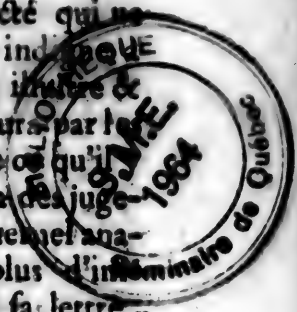 cté qui ne
ind
illustre &
ura par le
qu'il
juge-
ana-
plus d'in
sa lettre
BIBLIOTHÈQUE
S.M.E.
1964
Séminaire de Québec